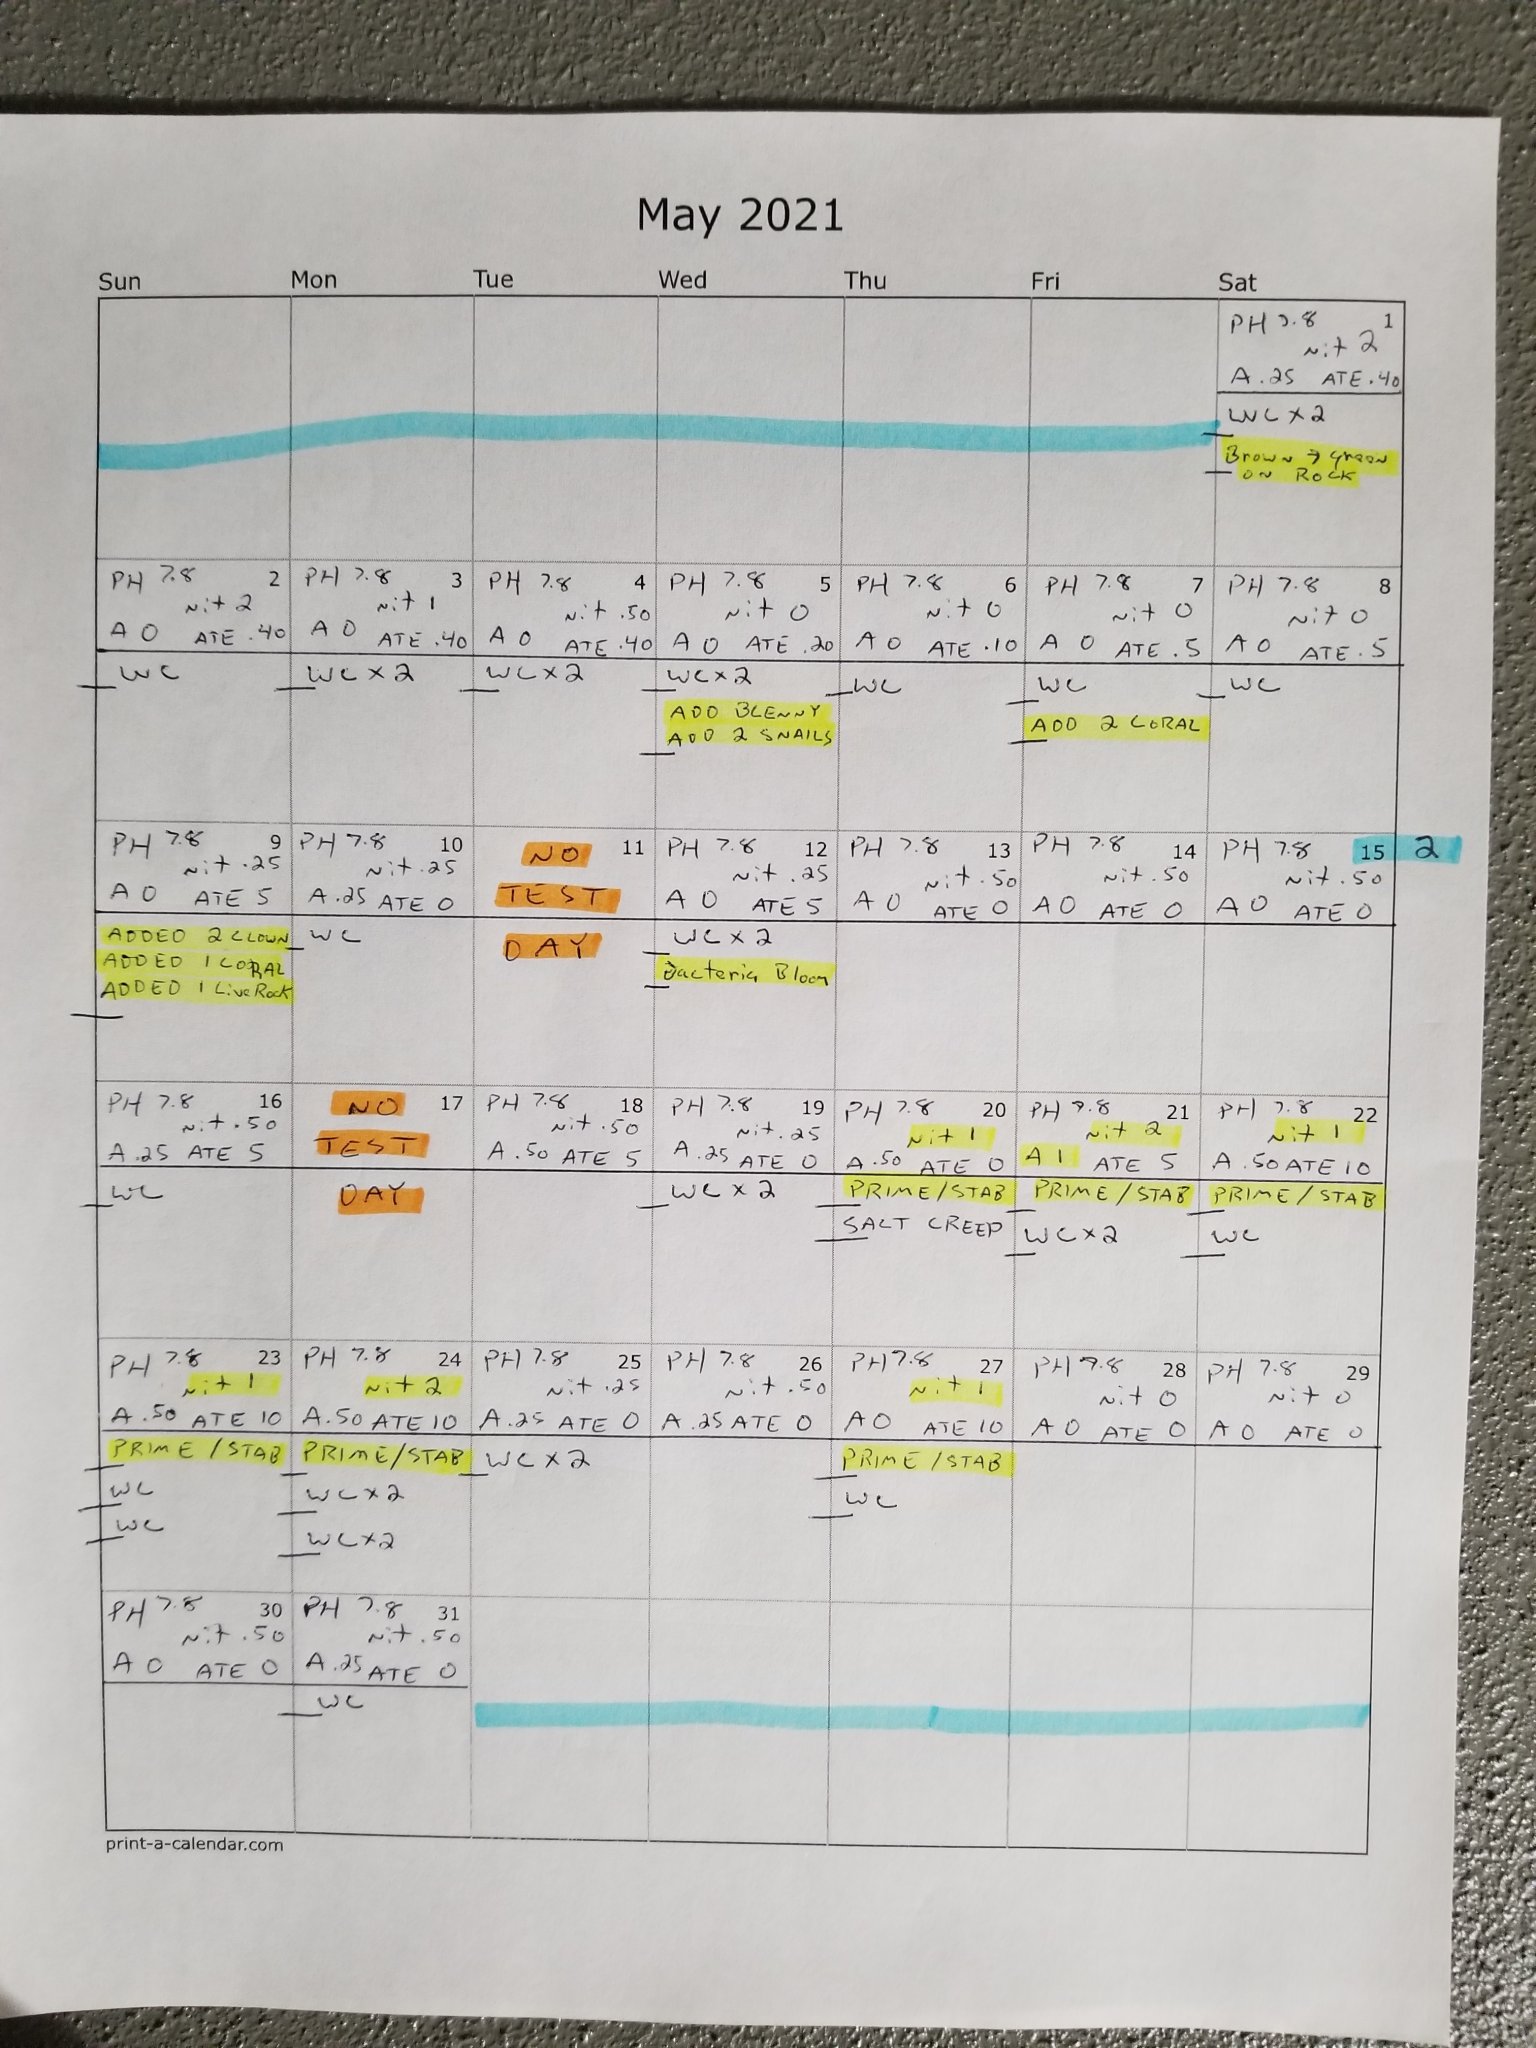 May 2021
Sun Mon Tue Wed Thu Fri Sat
PH 7.8 1
Nit 2
A .25 ATE .40
WC x 2
Brown → Green
ON ROCK
PH 7.8 2
Nit 2
A 0 ATE .40
WC
PH 7.8 3
Nit 1
A 0 ATE .40
WC x 2
PH 7.8 4
Nit .50
A 0 ATE .40
WC x 2
PH 7.8 5
Nit 0
A 0 ATE .20
WC x 2
ADD BLENNY
ADD 2 SNAILS
PH 7.8 6
Nit 0
A 0 ATE .10
WC
PH 7.8 7
Nit 0
A 0 ATE .5
WC
ADD 2 CORAL
PH 7.8 8
Nit 0
A 0 ATE .5
WC
PH 7.8 9
Nit .25
A 0 ATE 5
ADDED 2 CLOWN
ADDED 1 CORAL
ADDED 1 Live Rock
PH 7.8 10
Nit .25
A .25 ATE 0
WC
NO 11
TEST
DAY
PH 7.8 12
Nit .25
A 0 ATE 5
WC x 2
Bacteria Bloom
PH 7.8 13
Nit .50
A 0 ATE 0
PH 7.8 14
Nit .50
A 0 ATE 0
PH 7.8 15 2
Nit .50
A 0 ATE 0
PH 7.8 16
Nit .50
A .25 ATE 5
WC
NO 17
TEST
DAY
PH 7.8 18
Nit .50
A .50 ATE 5
PH 7.8 19
Nit .25
A .25 ATE 0
WC x 2
PH 7.8 20
Nit 1
A .50 ATE 0
PRIME/STAB
SALT CREEP
PH 7.8 21
Nit 2
A 1 ATE 5
PRIME/STAB
WC x 2
PH 7.8 22
Nit 1
A .50 ATE 10
PRIME/STAB
WC
PH 7.8 23
Nit 1
A .50 ATE 10
PRIME/STAB
WC
WC
PH 7.8 24
Nit 2
A .50 ATE 10
PRIME/STAB
WC x 2
WC x 2
PH 7.8 25
Nit .25
A .25 ATE 0
WC x 2
PH 7.8 26
Nit .50
A .25 ATE 0
PH 7.8 27
Nit 1
A 0 ATE 10
PRIME/STAB
WC
PH 7.8 28
Nit 0
A 0 ATE 0
PH 7.8 29
Nit 0
A 0 ATE 0
PH 7.8 30
Nit .50
A 0 ATE 0
PH 7.8 31
Nit .50
A .25 ATE 0
WC
print-a-calendar.com